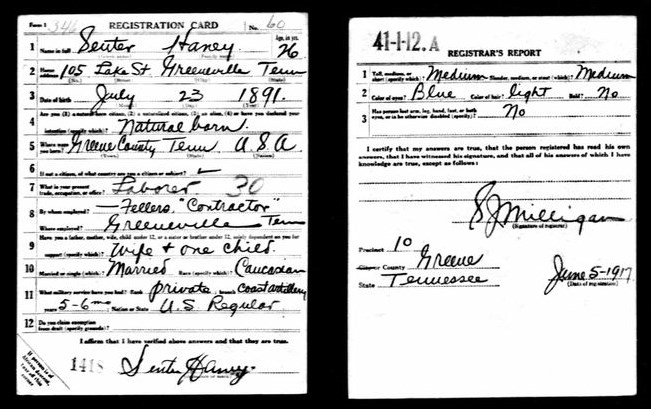 Form 1 346 REGISTRATION CARD No. 60
1 Name in full Senter Haney Age, in yrs. 26
2 Home address 105 Lake St. Greeneville Tenn
3 Date of birth July 23 1891.
4 Are you (1) a natural-born citizen, (2) a naturalized citizen, (3) an alien, (4) or have you declared your intention (specify which)? Natural born.
5 Where were you born? Greene County Tenn U.S.A
(Town) (State) (Nation)
6 If not a citizen, of what country are you a citizen or subject?
7 What is your present trade, occupation, or office? Laborer 30
8 By whom employed? — Fellers, "Contractor"
Where employed? Greeneville Tenn
9 Have you a father, mother, wife, child under 12, or a sister or brother under 12, solely dependent on you for support (specify which)? Wife & one child.
10 Married or single (which)? Married Race (specify which)? Caucasian
11 What military service have you had? Rank private; branch Coast artillery
years 5-6 mo; Nation or State U.S. Regular
12 Do you claim exemption from draft (specify grounds)?
I affirm that I have verified above answers and that they are true.
1418 Senter Haney
If person is of African descent, tear off this corner
41-1-12. A
REGISTRAR'S REPORT
1 Tall, medium, or short (specify which)? Medium Slender, medium, or stout (which)? Medium
2 Color of eyes? Blue Color of hair? light Bald? No
3 Has person lost arm, leg, hand, foot, or both eyes, or is he otherwise disabled (specify)? No
I certify that my answers are true, that the person registered has read his own answers, that I have witnessed his signature, and that all of his answers of which I have knowledge are true, except as follows:
S J Milligan
(Signature of registrar)
Precinct 10
City or County Greene
State Tennessee
June 5-1917
(Date of registration)